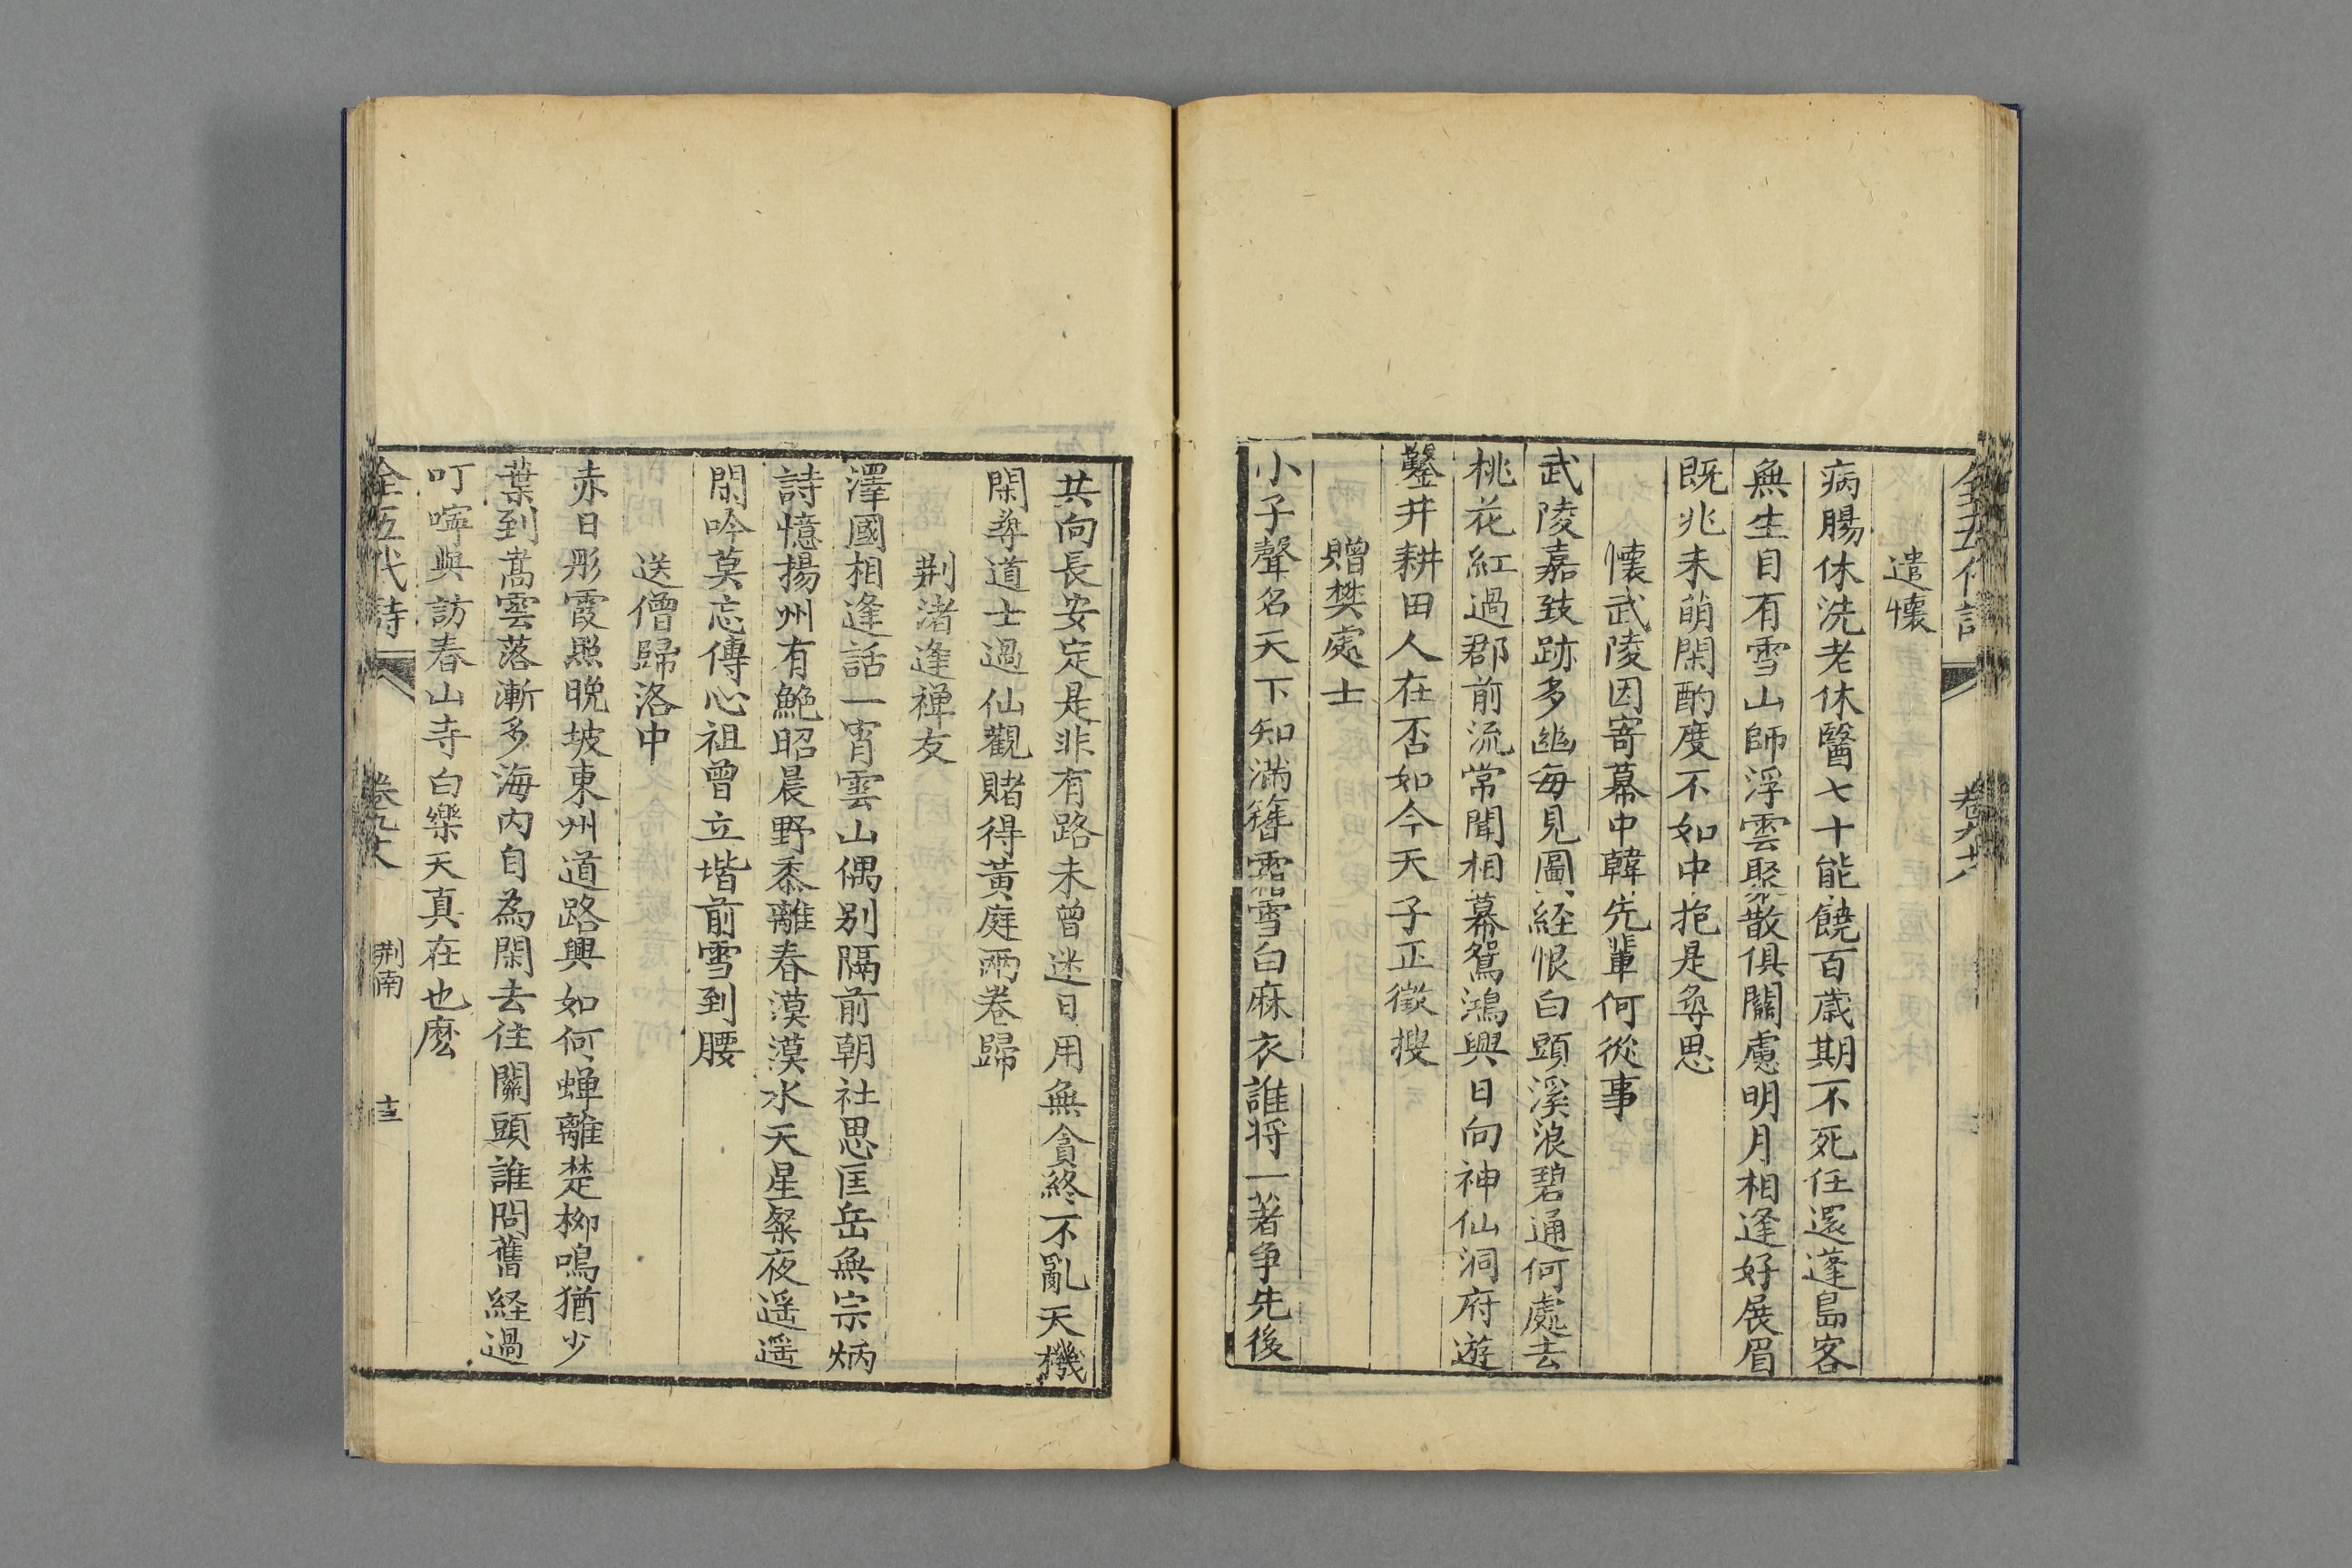 全五代詩 卷九十八
遣懷
病腸休洗老休醫七十能饒百歲期不死任還蓬島客
無生目有雪山師浮雲聚散俱關慮明月相逢好展眉
既兆未萌閑酌度不如中抱是尋思
懷武陵因寄幕中韓先輩何從事
武陵嘉致跡多幽每見圖經恨白頭溪浪碧通何處去
桃花紅過郡前流常聞相幕鴛鴻興日向神仙洞府遊
鑿井耕田人在否如今天子正徵搜
贈樊處士
小子聲名天下知滿簪霜雪白麻衣誰將一著爭先後
共向長安定是非有路未曾迷日用無貪終不亂天機
閑尋道士過仙觀賭得黃庭兩卷歸
荆渚逢禪友
澤國相逢話一宵雲山偶別隔前朝社思匡岳無宗炳
詩憶揚州有鮑昭晨野黍離春漠漠水天星粲夜遥遥
閑吟莫忘傳心祖曾立堦前雪到腰
送僧歸洛中
赤日彤霞照晚坡東州道路興如何蝉離楚柳鳴猶少
葉到嵩雲落漸多海內自為閑去住關頭誰問舊經過
叮嚀與訪春山寺白樂天真在也麼
全五代詩 卷九十八 荆南 十三